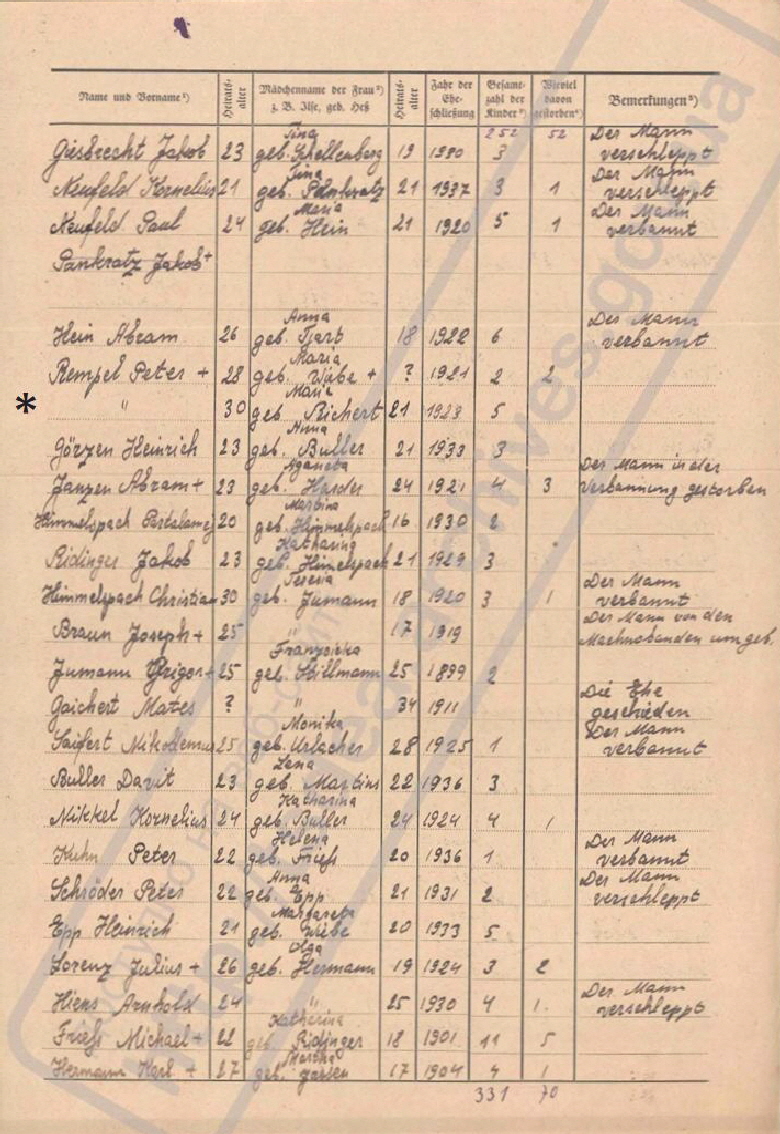 Name und Vorname¹) Heirats-alter Mädchenname der Frau²) z. B. Ilse, geb. Heß Heirats-alter Jahr der Ehe-schließung Gesamt-zahl der Kinder³) Wieviel davon gestorben⁴) Bemerkungen⁵)
252 52
Giesbrecht Jakob 23 Tina geb. Schellenberg 19 1930 3 Der Mann verschleppt
Neufeld Kornelius 21 Tina geb. Pankratz 21 1937 3 1 Der Mann verschleppt
Neufeld Paul 24 Maria geb. Hein 21 1920 5 1 Der Mann verbannt
Pankratz Jakob +
Hein Abram 26 Anna geb. Tjart 18 1922 6 Der Mann verbannt
Rempel Peter + 28 Maria geb. Wiebe + ? 1921 2 2
* " 30 Maria geb. Richert 21 1923 5
Görzen Heinrich 23 Anna geb. Buller 21 1933 3
Janzen Abram + 23 Aganeta geb. Harder 24 1921 4 3 Der Mann in der Verbannung gestorben
Himmelspach 20 Martina geb. Himmelspach 16 1930 2
Ridinger Jakob 23 Katharina geb. Himelspach 21 1929 3
Himmelspach Christian 30 Teresia geb. Jumann 18 1920 3 1 Der Mann verbannt
Braun Joseph + 25 " 17 1919 Der Mann von den Machnobanden umgeb.
Jumann Grigor + 25 Franziska geb. Hillmann 25 1899 2
Gaichert Mates ? " 34 1911 Die Ehe geschieden
Saifert Nikodemus 25 Monika geb. Urbacher 28 1925 1 Der Mann verbannt
Buller Davit 23 Lena geb. Martins 22 1936 3
Nikkel Kornelius 24 Katharina geb. Buller 24 1924 4 1
Kuhn Peter 22 Helena geb. Frieß 20 1936 1 Der Mann verbannt
Schröder Peter 22 Anna geb. Epp 21 1931 2 Der Mann verschleppt
Epp Heinrich 21 Margareta geb. Wiebe 20 1933 5
Lorenz Julius + 26 Olga geb. Hermann 19 1924 3 2
Hiens Arnhold 24 " 25 1930 4 1. Der Mann verschleppt
Frieß Michael + 22 Katherina geb. Ridinger 18 1901 11 5
Hermann Karl + 27 Martha geb. 17 1904 4 1
331 70